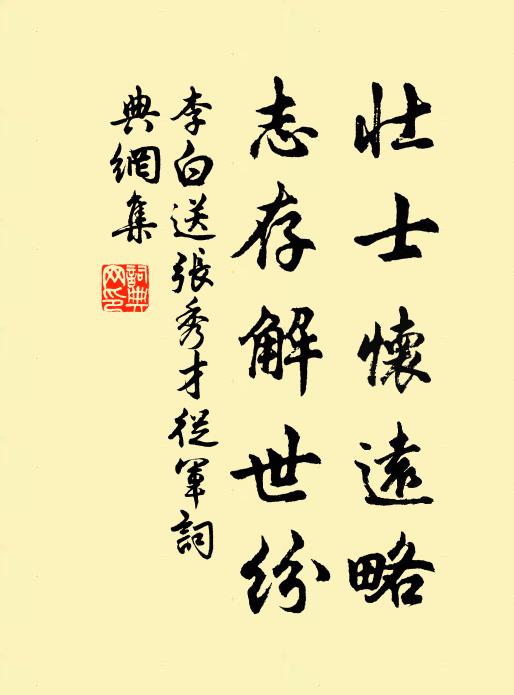 壮士懷遠略
志存解世紛
李白送張秀才從軍詞
典網集
詞典
网印